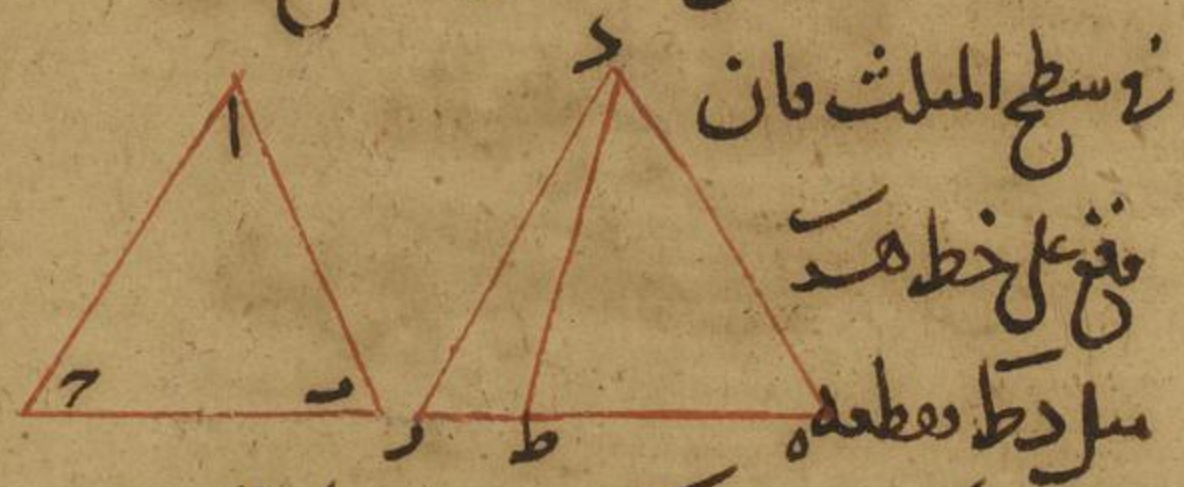 في سطح المثلث فان
وقع على خط هـد
مثل دط وقطعه
د
ا
ح
ب
ر
ط
ه